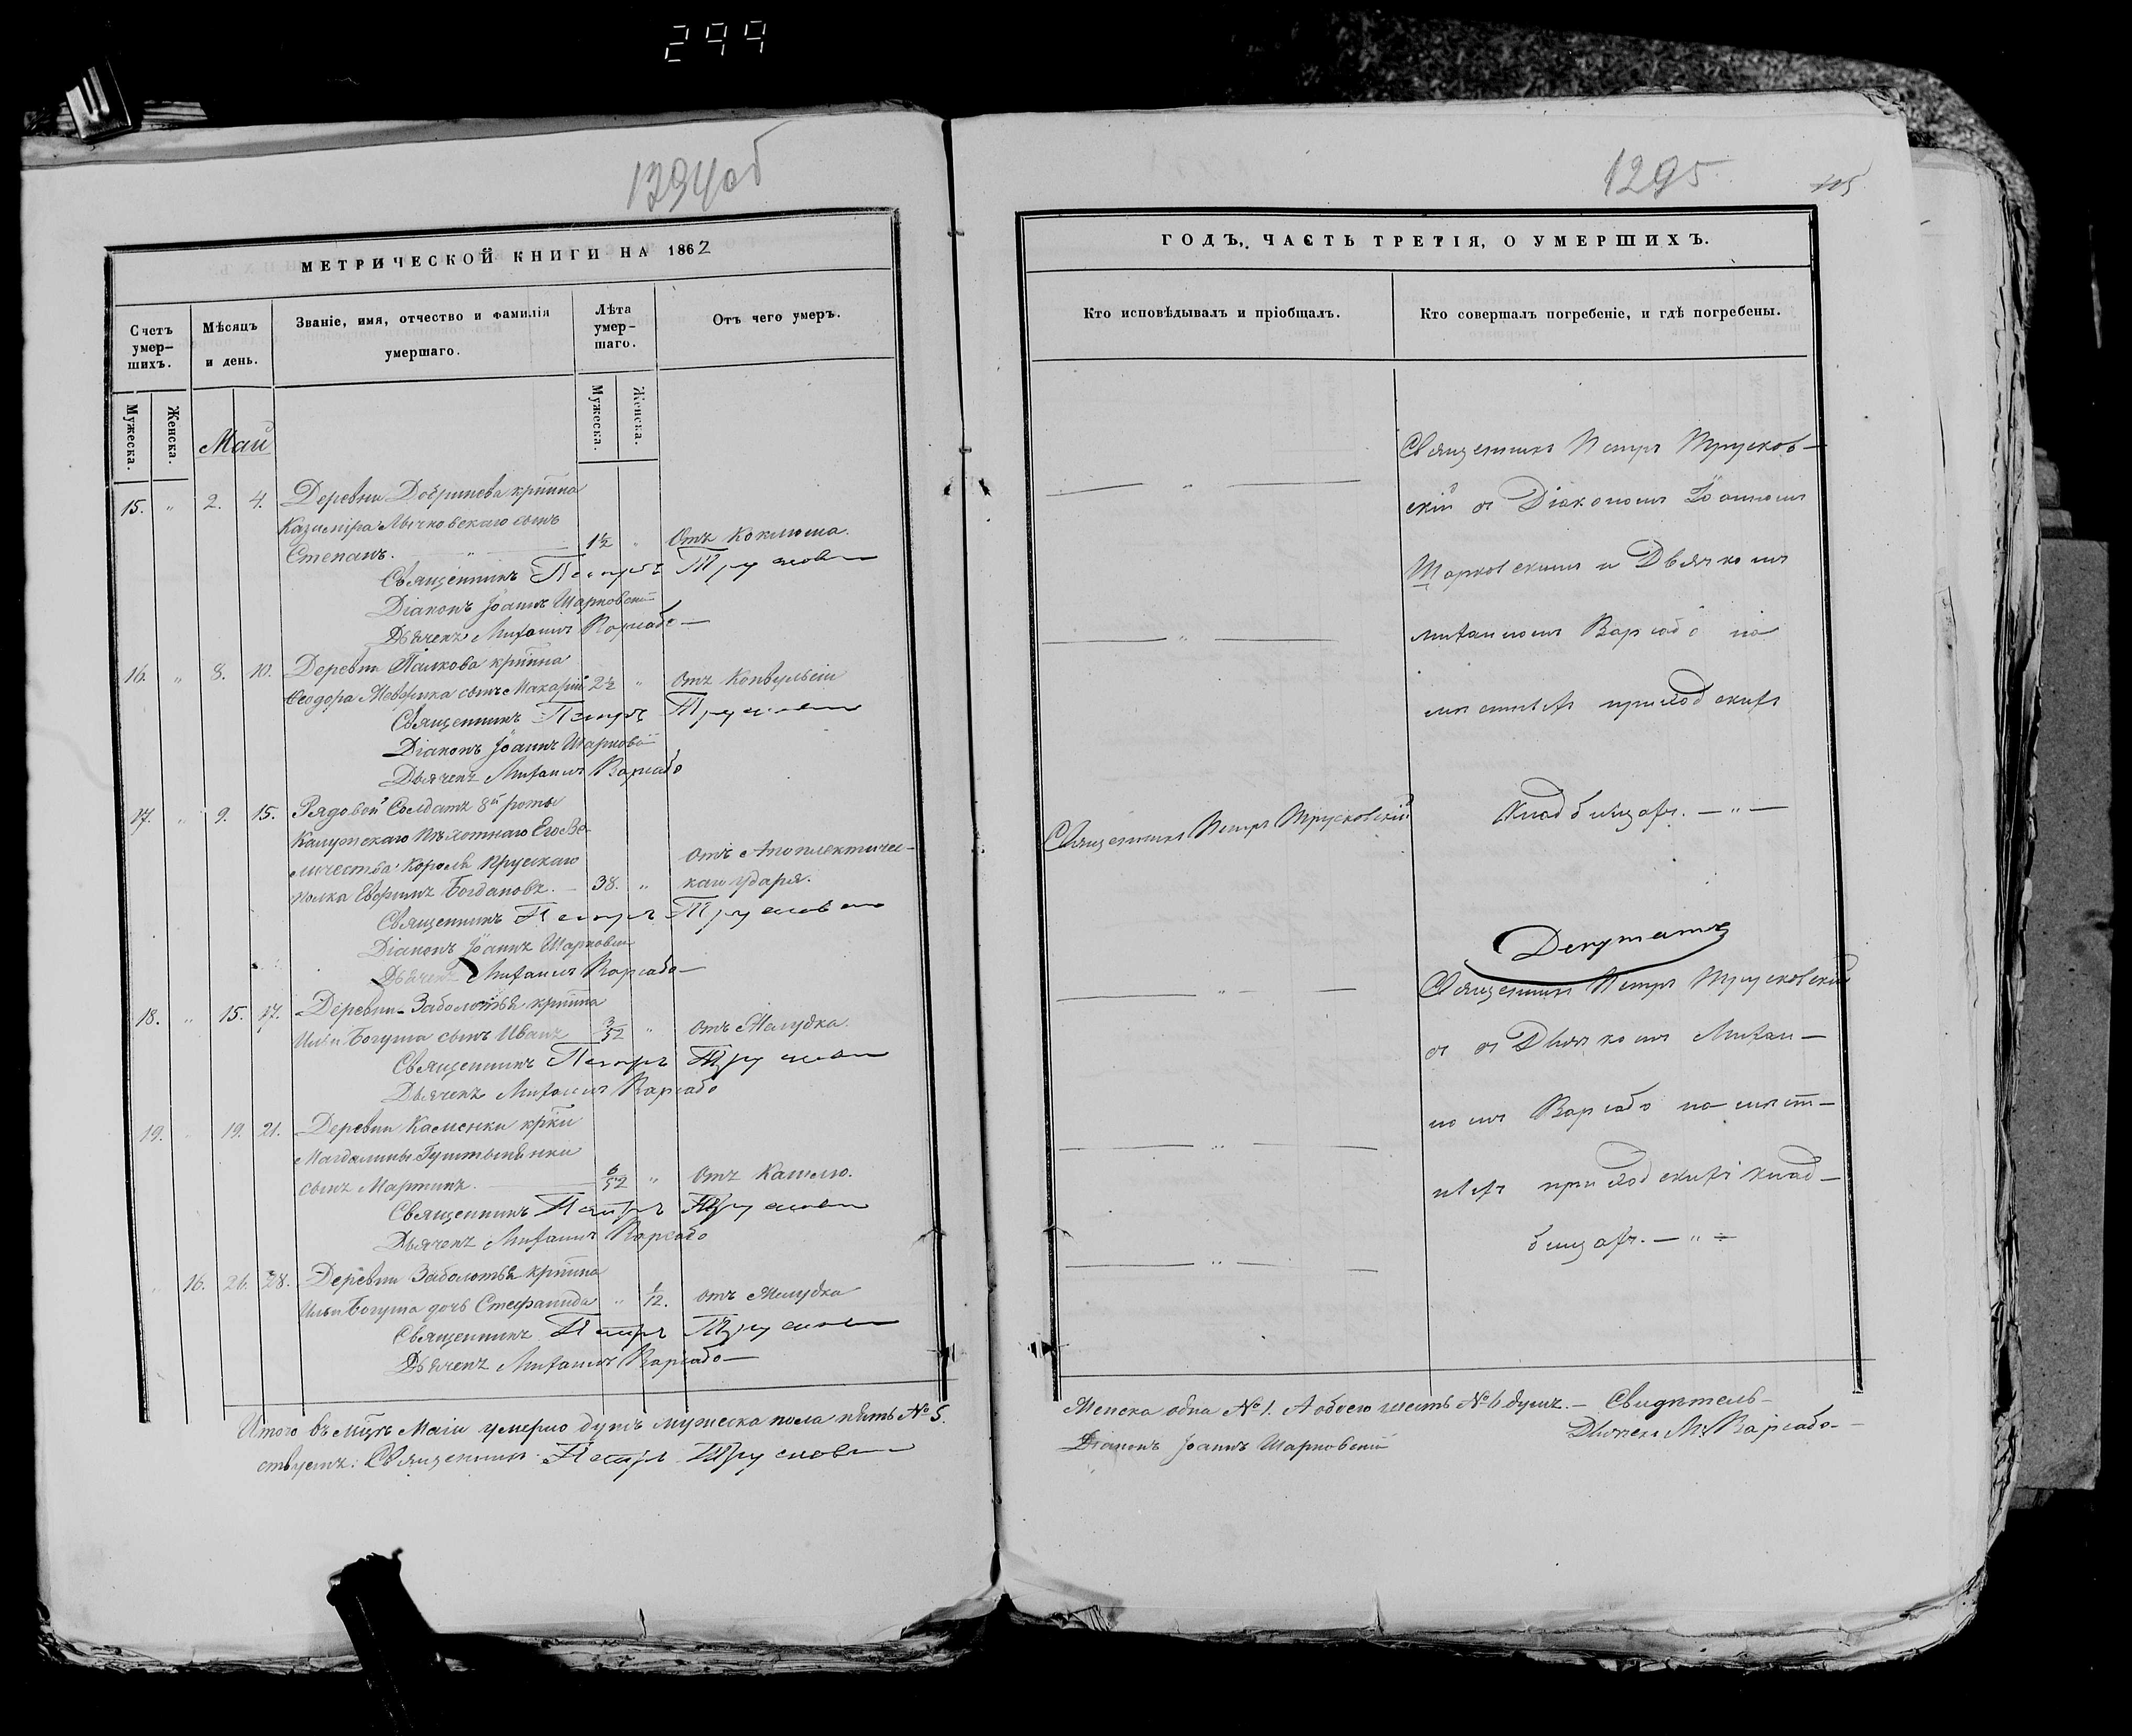 299
1394об
МЕТРИЧЕСКОЙ КНИГИ НА 1862
Счетъ умер-шихъ.
Мѣсяцъ и день.
Званіе, имя, отчество и фамилія умершаго.
Лѣта умер-шаго.
Отъ чего умеръ.
Мужеска.
Женска.
Мужеска.
Женска.
Май
15. „ 2. 4. Деревни Добринева крпина
Казимира Лычковскаго сынъ
Степанъ. 1½ „ Отъ Коклюша.
Священникъ Петръ Трусковскій
Діаконъ Іоаннъ Шарковскій
Дьячекъ Михаилъ Варсабо
16. „ 8. 10. Деревни Палкова крпина
Ѳеодора сынъ Макарій 2½ „ Отъ Конвульсіи
Священникъ Петръ Трусковскій
Діаконъ Іоаннъ Шарковскій
Дьячекъ Михаилъ Варсабо
17. „ 9. 15. Рядовой Солдатъ 8й роты
Калужскаго Пѣхотнаго Его Ве-
личества Короля Прускаго
полка Ефимъ Богдановъ. 38. „ Отъ Апоплектичес-
каго удара.
Священникъ Петръ Трусковскій
Діаконъ Іоаннъ Шарковскій
Дьячекъ Михаилъ Варсабо
18. „ 15. 17. Деревни Заболотья крпина
Ильи Богуша сынъ Иванъ 3/52 „ отъ Желудка.
Священникъ Петръ Трусковскій
Дьячекъ Михаилъ Варсабо
19. 19. 21. Деревни Каменки крки
Магдалины
сынъ Мартинъ. 6/52 „ Отъ Кашлю.
Священникъ Петръ Трусковскій
Дьячекъ Михаилъ Варсабо
„ 16. 26. 28. Деревни Заболотья крпина
Ильи Богуша дочь Стефанида „ 1/12. отъ Желудка
Священникъ Петръ Трусковскій
Дьячекъ Михаилъ Варсабо
Итого въ мцѣ Маіи умерло душъ мужеска пола пять № 5.
ствуемъ: Священникъ Петръ Трусковскій
1295
115
ГОДЪ, ЧАСТЬ ТРЕТІЯ, О УМЕРШИХЪ.
Кто исповѣдывалъ и пріобщалъ.
Кто совершалъ погребеніе, и гдѣ погребены.
Священникъ Петръ Трусков-
скій съ Діакономъ Іоанномъ
Шарковскимъ и Дьячкомъ
Михаиломъ Варсабо на
мѣстныхъ приходскихъ
Священникъ Петръ Трусковскій
Кладбищахъ. — „ —
Депутатъ
Священникъ Петръ Трусковскій
съ Дьячкомъ Михаи-
ломъ Варсабо на мѣст-
ныхъ приходскихъ клад-
бищахъ. — „ —
Женска одна № 1. А обоего шесть № 6 душъ. — Свидѣтель-
Діаконъ Іоаннъ Шарковскій
Дьячекъ М. Варсабо